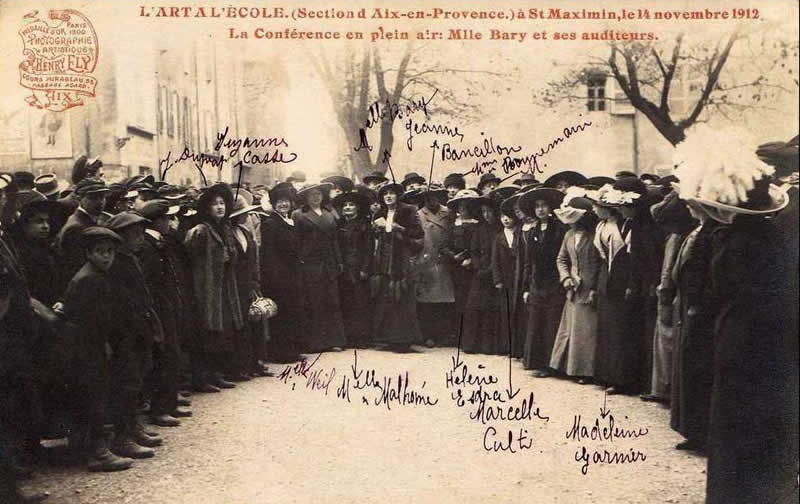 L'ART A L'ÉCOLE. (Section d Aix-en-Provence.) à St Maximin, le 14 novembre 1912.
La Conférence en plein air: Mlle Bary et ses auditeurs.
MEDAILLE D'OR PARIS 1900
PHOTOGRAPHIE
ARTISTIQUE
HENRY ELY
COURS MIRABEAU
PASSAGE AGARD
AIX
Suzanne
Casse
Melle Bary
Jeanne
Bancillon
Mme Bonnemain
Melle Weil
Melle Malhomé
Hélène
Marcelle
Culti.
Madeleine
Garnier